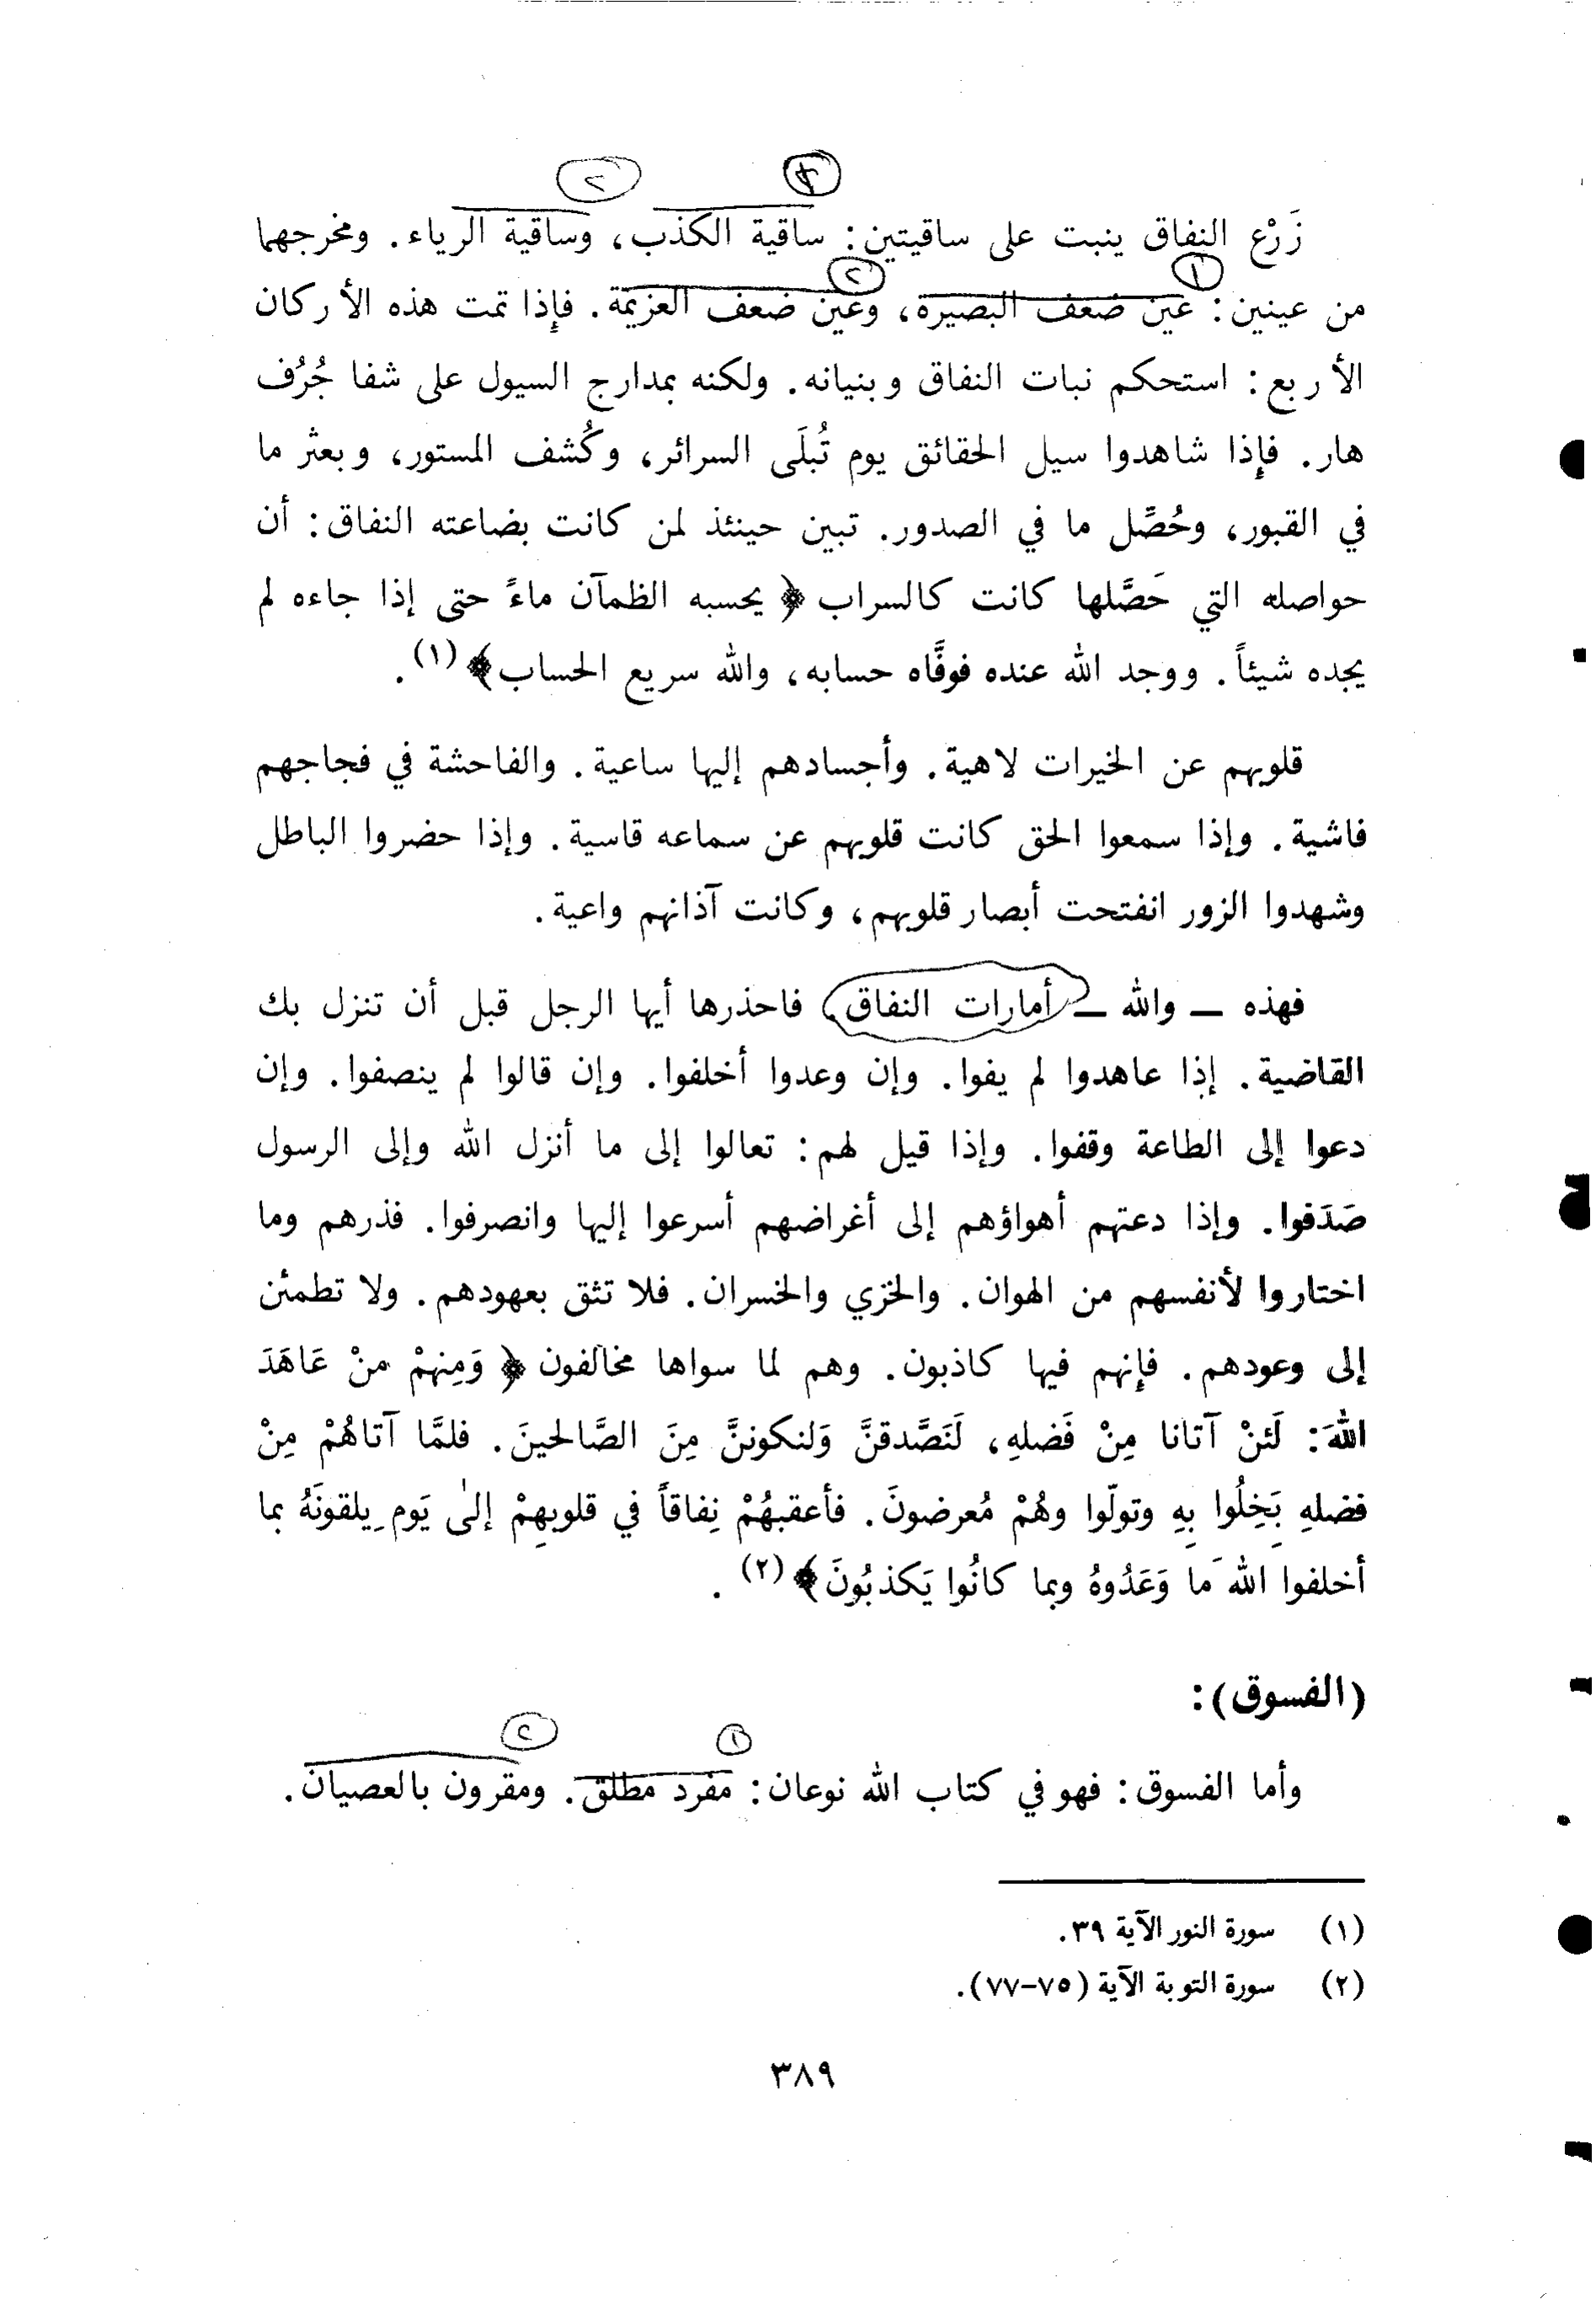 ١ ٢
زَرْع النفاق ينبت على ساقيتين: ساقية الكذب، وساقية الرياء. ومخرجهما
١ ٢
من عينين: عين ضعف البصيرة، وعين ضعف العزيمة. فإذا تمت هذه الأركان
الأربع: استحكم نبات النفاق وبنيانه. ولكنه بمدارج السيول على شفا جُرُف
هار. فإذا شاهدوا سيل الحقائق يوم تُبلَى السرائر، وكُشف المستور، وبعثر ما
في القبور، وحُصِّل ما في الصدور. تبين حينئذ لمن كانت بضاعته النفاق: أن
حواصله التي حَصَّلها كانت كالسراب ﴿يحسبه الظمآن ماءً حتى إذا جاءه لم
يجده شيئاً. ووجد الله عنده فوفَّاه حسابه، والله سريع الحساب﴾(١).
قلوبهم عن الخيرات لاهية. وأجسادهم إليها ساعية. والفاحشة في فجاجهم
فاشية. وإذا سمعوا الحق كانت قلوبهم عن سماعه قاسية. وإذا حضروا الباطل
وشهدوا الزور انفتحت أبصار قلوبهم، وكانت آذانهم واعية.
فهذه — والله — أمارات النفاق. فاحذرها أيها الرجل قبل أن تنزل بك
القاضية. إذا عاهدوا لم يفوا. وإن وعدوا أخلفوا. وإن قالوا لم ينصفوا. وإن
دعوا إلى الطاعة وقفوا. وإذا قيل لهم: تعالوا إلى ما أنزل الله وإلى الرسول
صَدَفوا. وإذا دعتهم أهواؤهم إلى أغراضهم أسرعوا إليها وانصرفوا. فذرهم وما
اختاروا لأنفسهم من الهوان. والخزي والخسران. فلا تثق بعهودهم. ولا تطمئن
إلى وعودهم. فإنهم فيها كاذبون. وهم لما سواها مخالفون ﴿وَمِنهمْ منْ عَاهَدَ
اللهَ: لَئنْ آتانا مِنْ فَضلهِ، لَنَصَّدقنَّ وَلنكوننَّ مِنَ الصَّالحينَ. فلمَّا آتاهُمْ مِنْ
فضلهِ بَخِلُوا بِهِ وتولّوا وهُمْ مُعرضونَ. فأعقبهُمْ نِفاقاً في قلوبهِمْ إلىٰ يَوم يلقونَهُ بما
أخلفوا اللهَ ما وَعَدُوهُ وبما كانُوا يَكذبُونَ﴾(٢).
(الفسوق):
١ ٢
وأما الفسوق: فهو في كتاب الله نوعان: مفرد مطلق. ومقرون بالعصيان.
(١) سورة النور الآية ٣٩.
(٢) سورة التوبة الآية (٧٥-٧٧).
٣٨٩